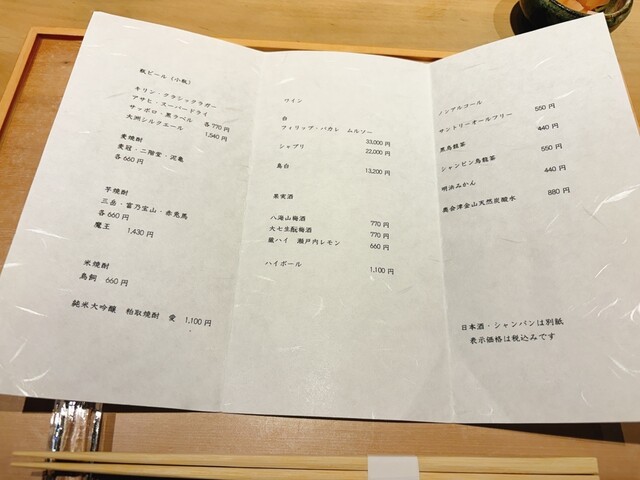 瓶ビール（小瓶）
キリン・クラシックラガー
アサヒ・スーパードライ
サッポロ・黒ラベル 各770円
大洲シルクエール 1,540円
麦焼酎
麦冠・二階堂・泥亀
各660円
芋焼酎
三岳・富乃宝山・赤兎馬
各660円
魔王 1,430円
米焼酎
鳥飼 660円
純米大吟醸 粕取焼酎 愛 1,100円
ワイン
白
フィリップ・パカレ ムルソー
33,000円
シャブリ 22,000円
島白 13,200円
果実酒
八海山梅酒 770円
大七生酛梅酒 770円
嵐ハイ 瀬戸内レモン 660円
ハイボール 1,100円
ノンアルコール
サントリーオールフリー 550円
黒烏龍茶 440円
ジャンピン烏龍茶 550円
明浜みかん 440円
奥会津金山天然炭酸水 880円
日本酒・シャンパンは別紙
表示価格は税込みです